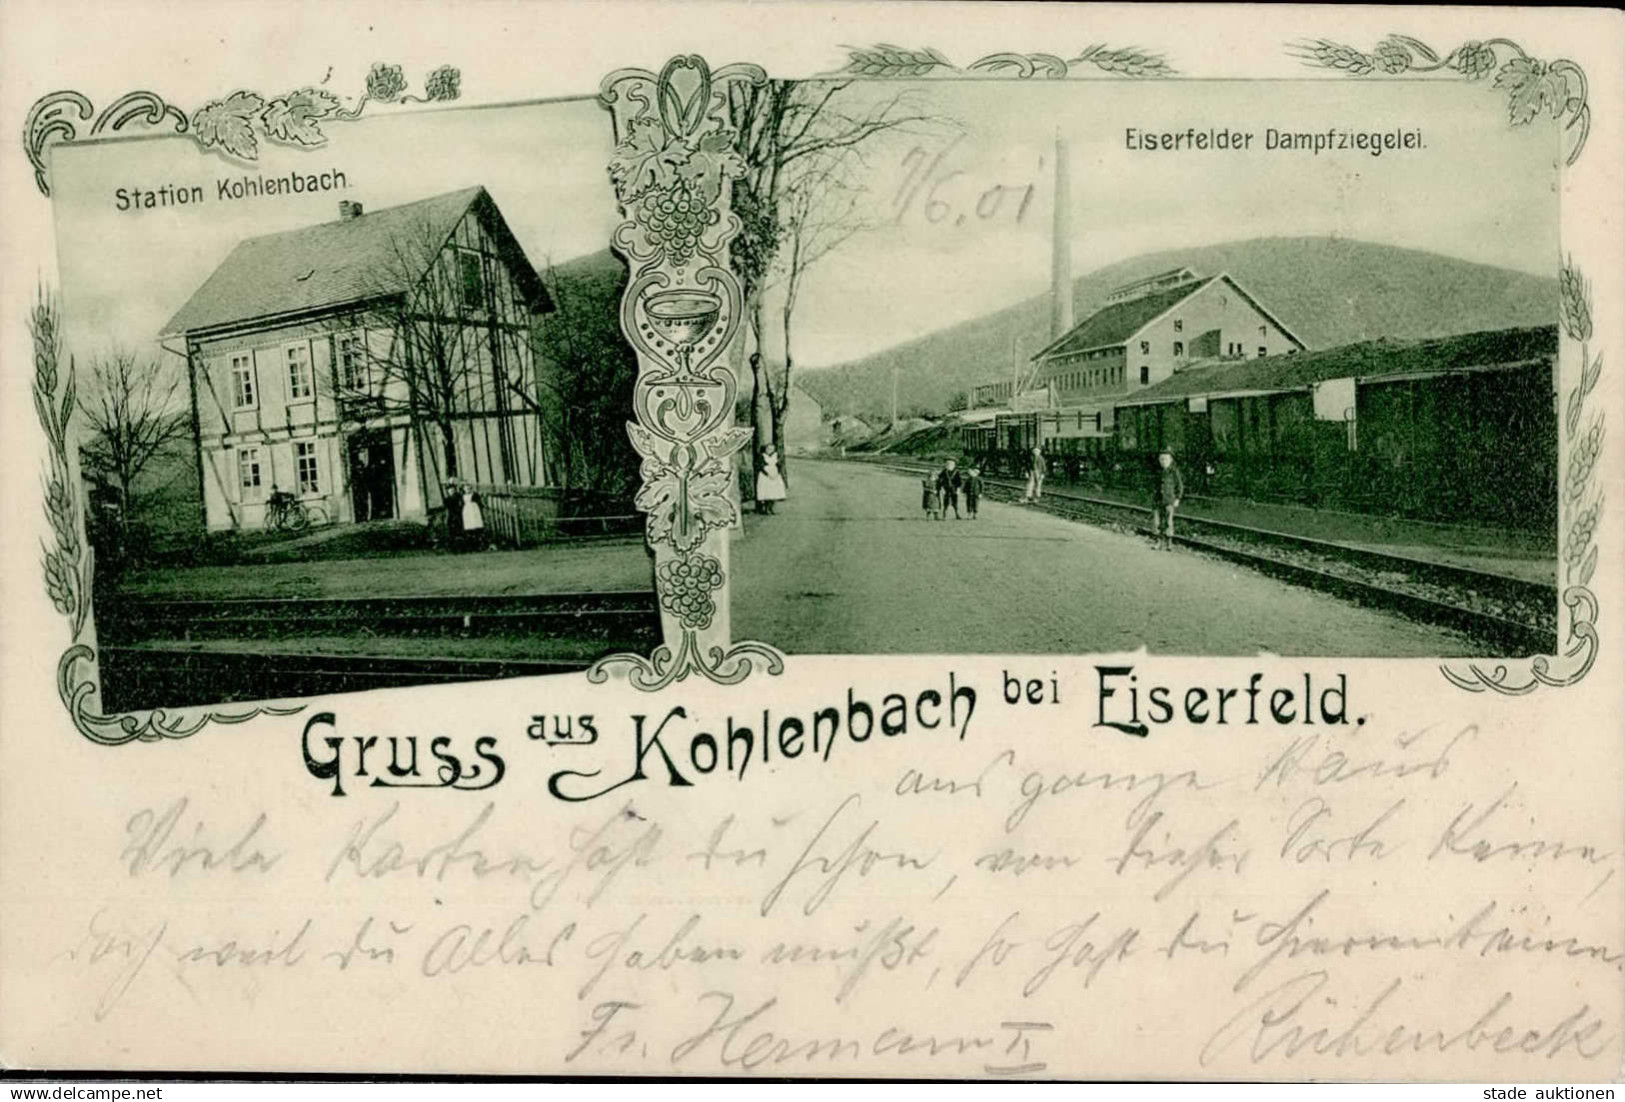 Station Kohlenbach.
Eiserfelder Dampfziegelei.
7/6.01
Gruss aus Kohlenbach bei Eiserfeld.
aus ganze Haus
Viele Karten hast du schon, von dieser Sorte keine,
doch weil du Alles haben mußt, so hast du hiermit eine.
Fr. Hermann II
stade auktionen